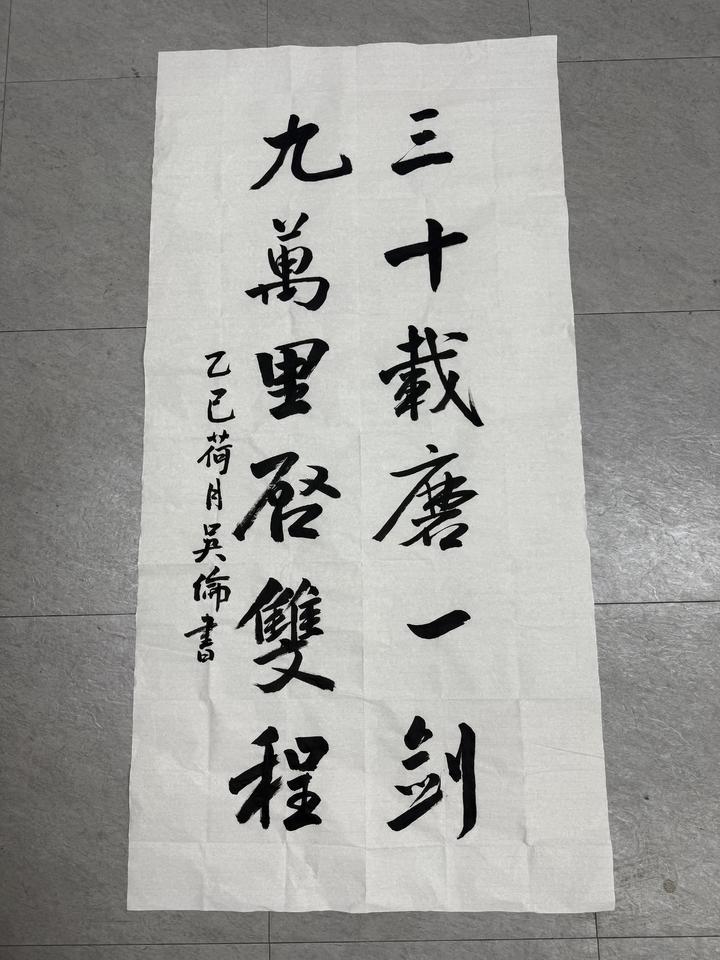 三十載磨一剑
九萬里啓雙程
乙巳荷月吴倫書